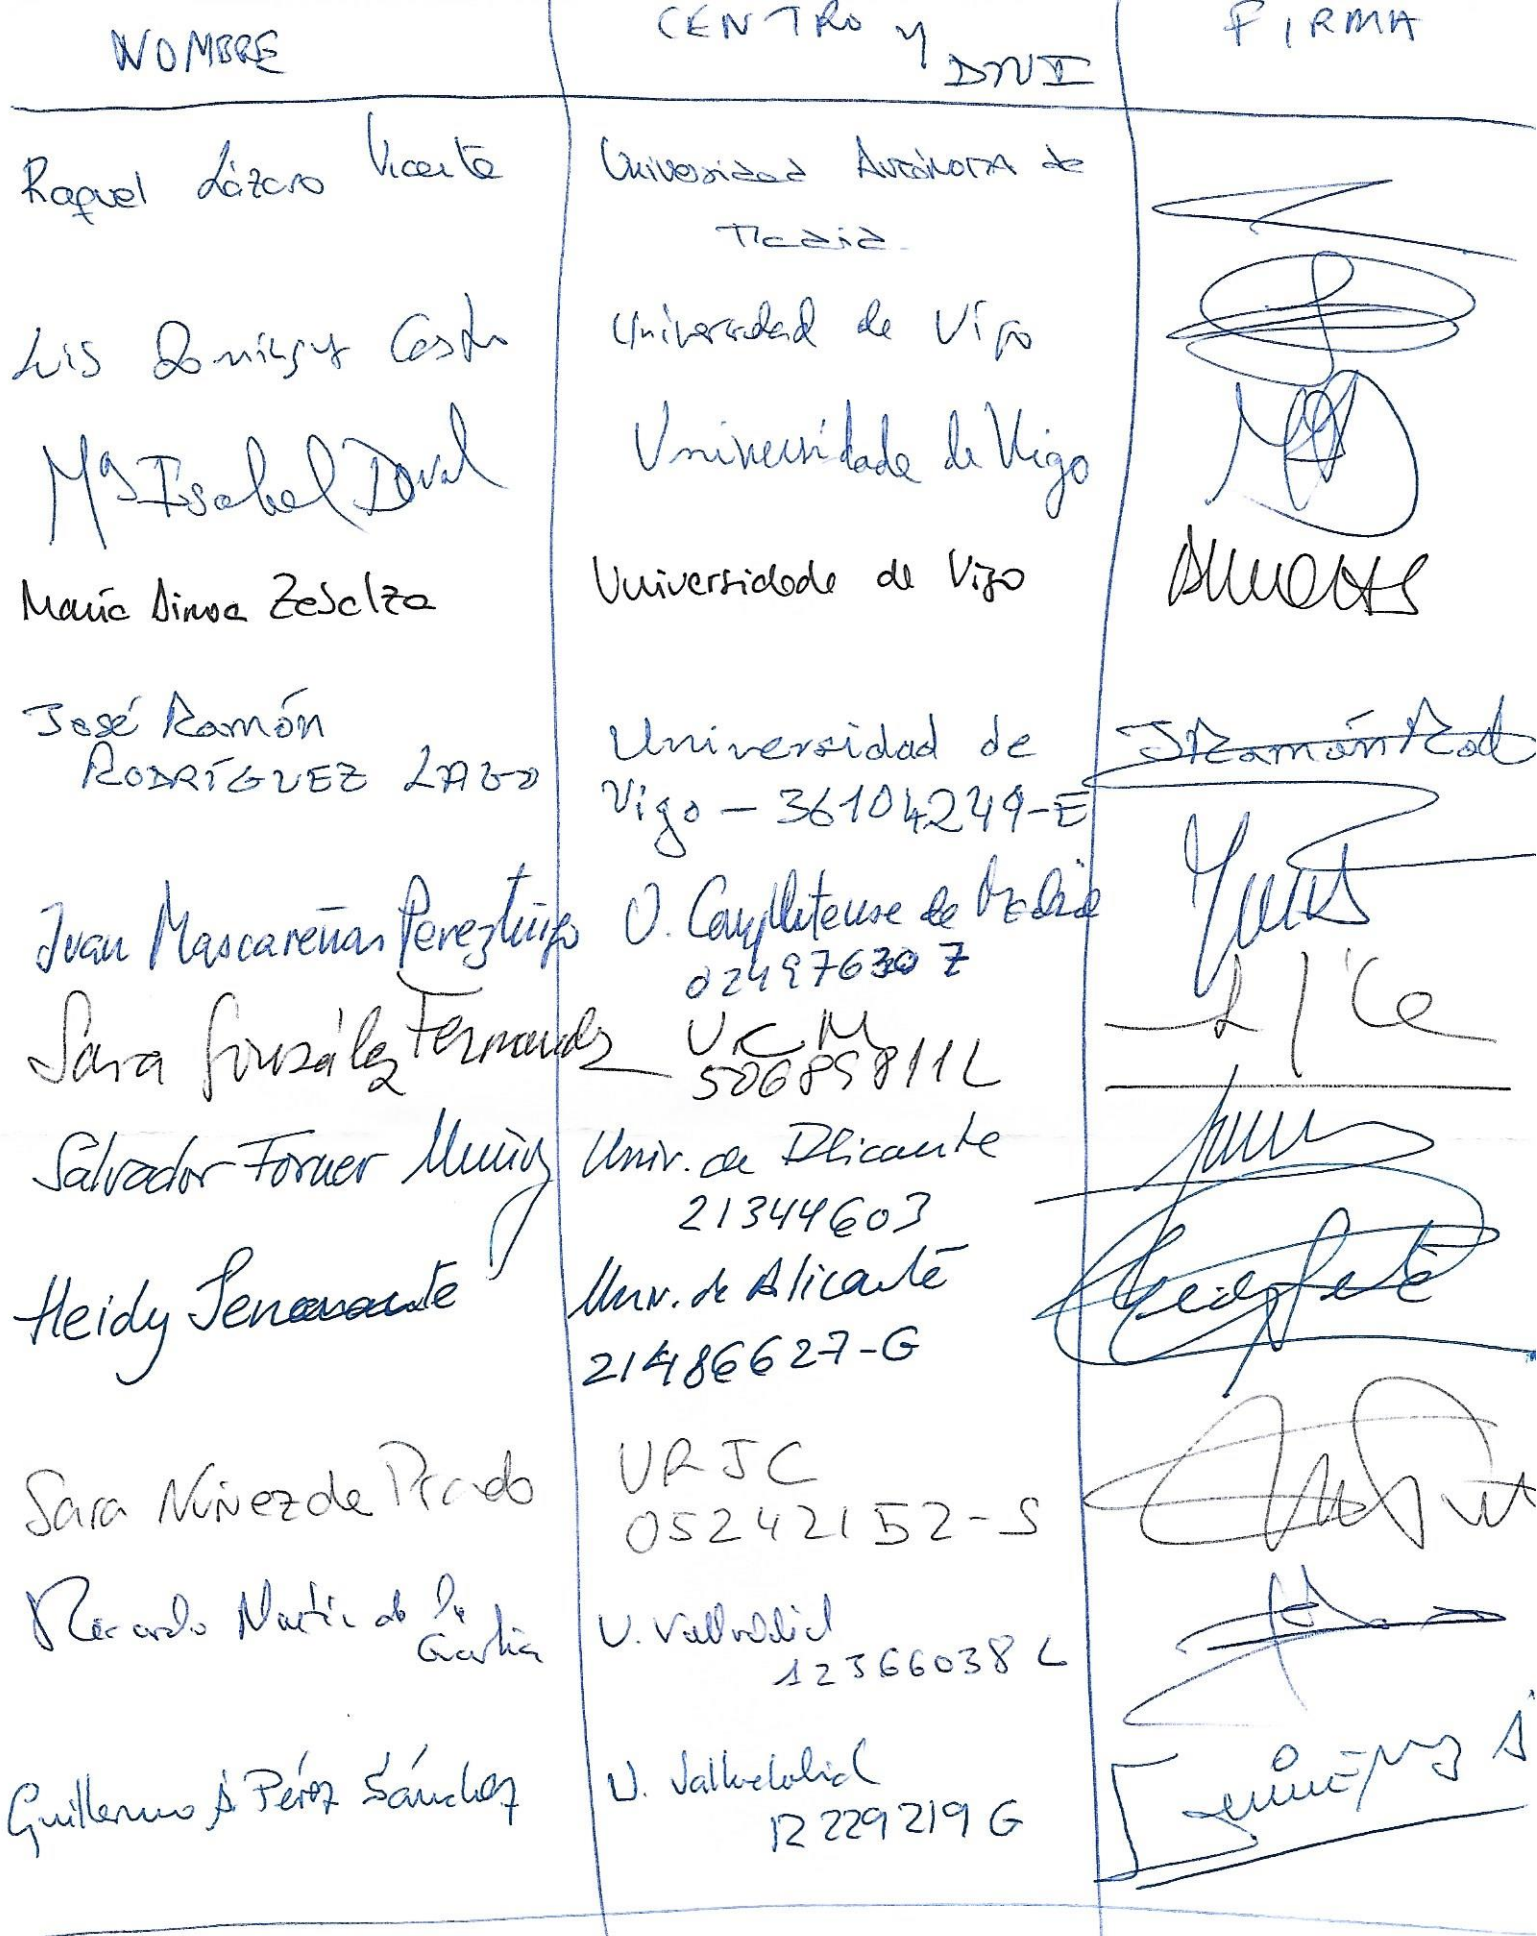 NOMBRE CENTRO y DNI FIRMA
Raquel Lázaro Vicente Universidad Autónoma de
Madrid
Luis Domínguez Castro Universidad de Vigo
Mª Isabel Doval Universidade de Vigo
María Ainoa Zabalza Universidade de Vigo
José Ramón
RODRÍGUEZ LAGO Universidad de JRamónRod
Vigo – 36104249-E
Juan Mascareñas Pérez-Iñigo U. Complutense de Madrid
02497630 Z
Sara González Fernández U.C.M
50689811L
Salvador Forner Muñoz Univ. de Alicante
21344603
Heidy Senante Univ. de Alicante
21486627-G
Sara Núñez de Prado URJC
05242152-S
Ricardo Martín de la U. Valladolid
Guardia 12366038 L
Guillermo Á Pérez Sánchez U. Valladolid
12229219 G